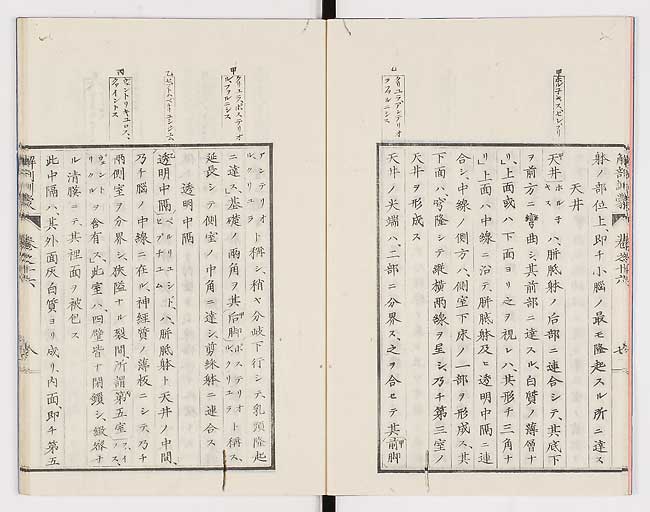 躰ノ部位上、即チ小腦ノ最モ隆起スル所ニ達ス
天井
天井ホルチキスハ、胼胝躰ノ后部ニ連合シテ、其底下
ヲ前方ニ彎曲シ、其前部ニ達スル、白質ノ薄層ナ
リ、上面或ハ下面ヨリ之ヲ視レハ、其形チ三角ナ
リ、上面ハ中線ニ沿テ、胼胝躰及ヒ透明中隔ニ連
合シ、中線ノ側方ハ、側室下床ノ一部ヲ形成ス、其
下面ハ、穹隆シテ縱横兩線ヲ呈シ、乃チ第三室ノ
天井ヲ形成ス
天井ノ尖端ハ、二部ニ分界ス、之ヲ合セテ其前脚
解剖訓蒙
卷之十六
七
アンテリオルクリユラト稱シ、稍々分歧下行シテ、乳頭隆起
ニ達ス、基礎ノ兩角ヲ其后脚ポステリオルクリユラト稱ス、
延長シテ側室ノ中角ニ達シ、剪綵躰ニ連合ス
透明中隔
透明中隔ハ、胼胝躰ト天井ノ中間、
乃チ腦ノ中線ニ在ル、神經質ノ薄板ニシテ、乃チ
兩側室ヲ分界シ、狹隘ナル裂間、所謂第五室
ヲ含有ス、此室ハ、四壁皆ナ閉鎖シ、緻密ナ
ル清膜ニテ、其裡面ヲ被包ス
此中隔ハ、其外面灰白質ヨリ成リ、內面即チ第五
解剖訓蒙
卷之十六
八
甲
乙
クリユラアンテリオラフオルニシス
甲
クリユラポステリオルフオルニシス
乙
丙
ウエントリキユロスクイントス